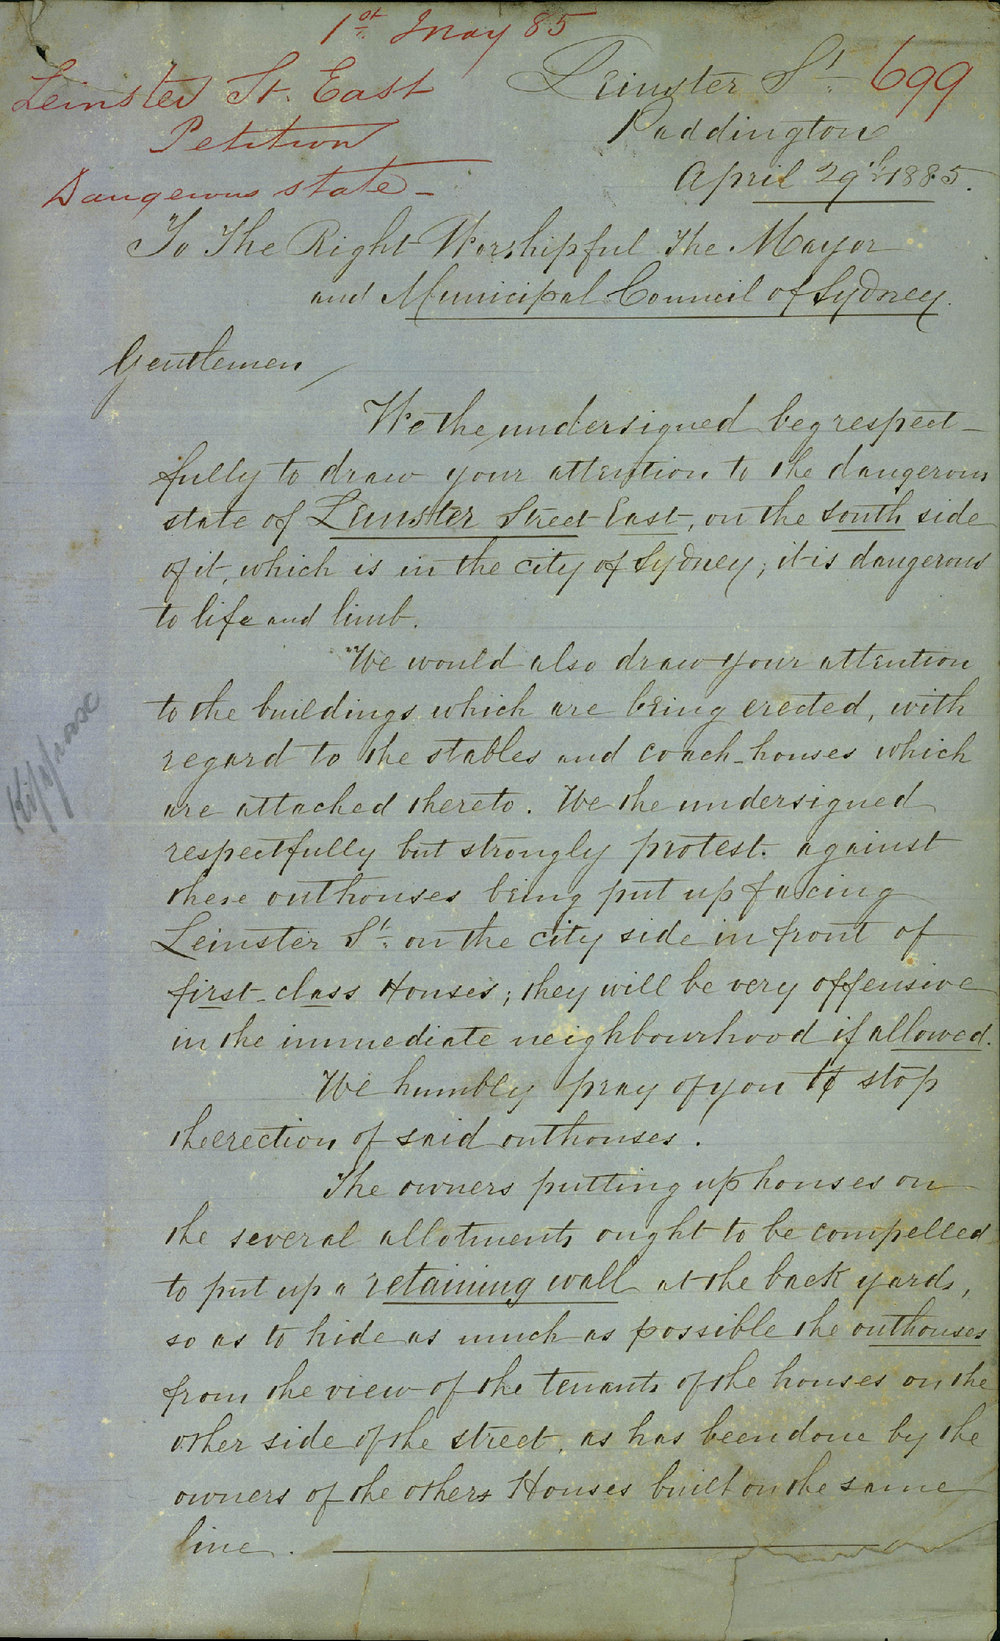 1st May 85
Leinster St. East
Petition
Dangerous state
699
Leinster St.
Paddington
April 29th 1885.
To The Right Worshipful The Mayor
and Municipal Council of Sydney.
Gentlemen
We the undersigned beg respect-
fully to draw your attention to the dangerous
state of Leinster Street East, on the south side
of it, which is in the city of Sydney; it is dangerous
to life and limb.
We would also draw your attention
to the buildings which are being erected, with
regard to the stables and coach-houses which
are attached thereto. We the undersigned
respectfully but strongly protest against
these outhouses being put up facing
Leinster St. on the city side in front of
first-class Houses; they will be very offensive
in the immediate neighbourhood if allowed.
We humbly pray of you to stop
the erection of said outhouses.
The owners putting up houses on
the several allotments ought to be compelled
to put up a retaining wall at the back yards,
so as to hide as much as possible the outhouses
from the view of the tenants of the houses on the
other side of the street, as has been done by the
owners of the others Houses built on the same
line.